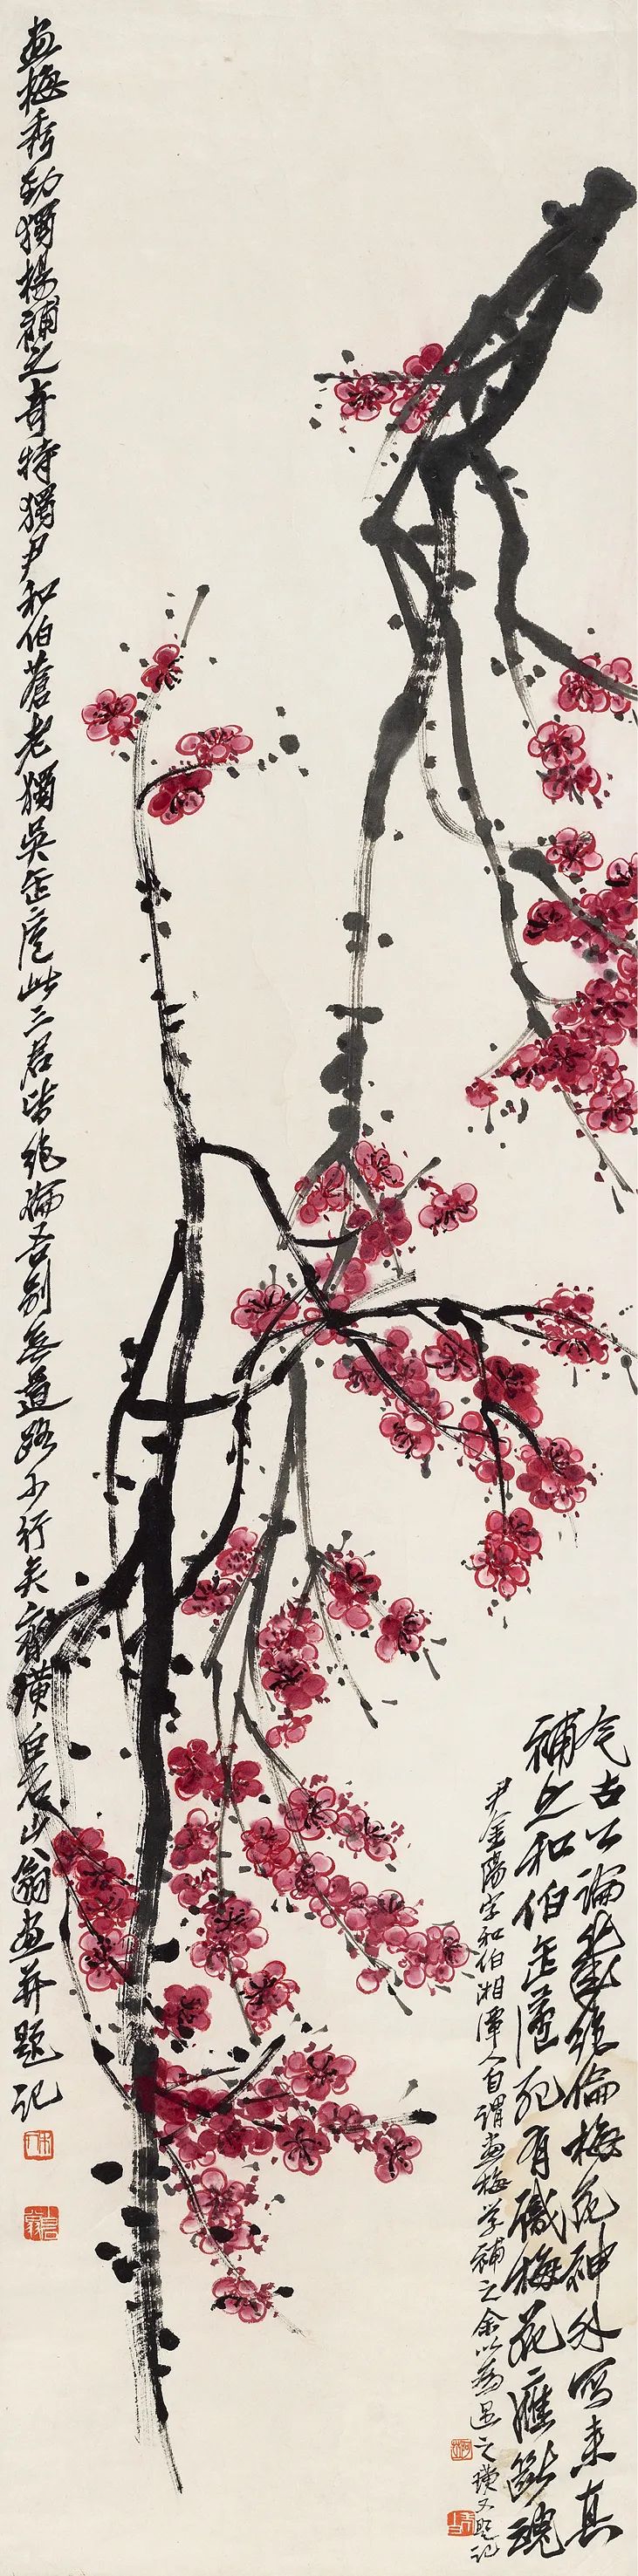 今古公論幾絕倫梅花神外寫来真
補之和伯缶廬死有識梅花應斷魂
尹金陽字和伯湘潭人自謂畫梅學補之余以為過之璜又題記
畫梅秀勁獨楊補之奇特獨尹和伯蒼老獨吳缶廬此三君皆絕倫吾別無道路可行矣齊璜白石山翁畫并題記